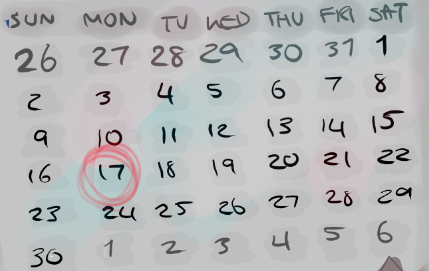 SUN MON TU WED THU FRI SAT
26 27 28 29 30 31 1
2 3 4 5 6 7 8
9 10 11 12 13 14 15
16 17 18 19 20 21 22
23 24 25 26 27 28 29
30 1 2 3 4 5 6